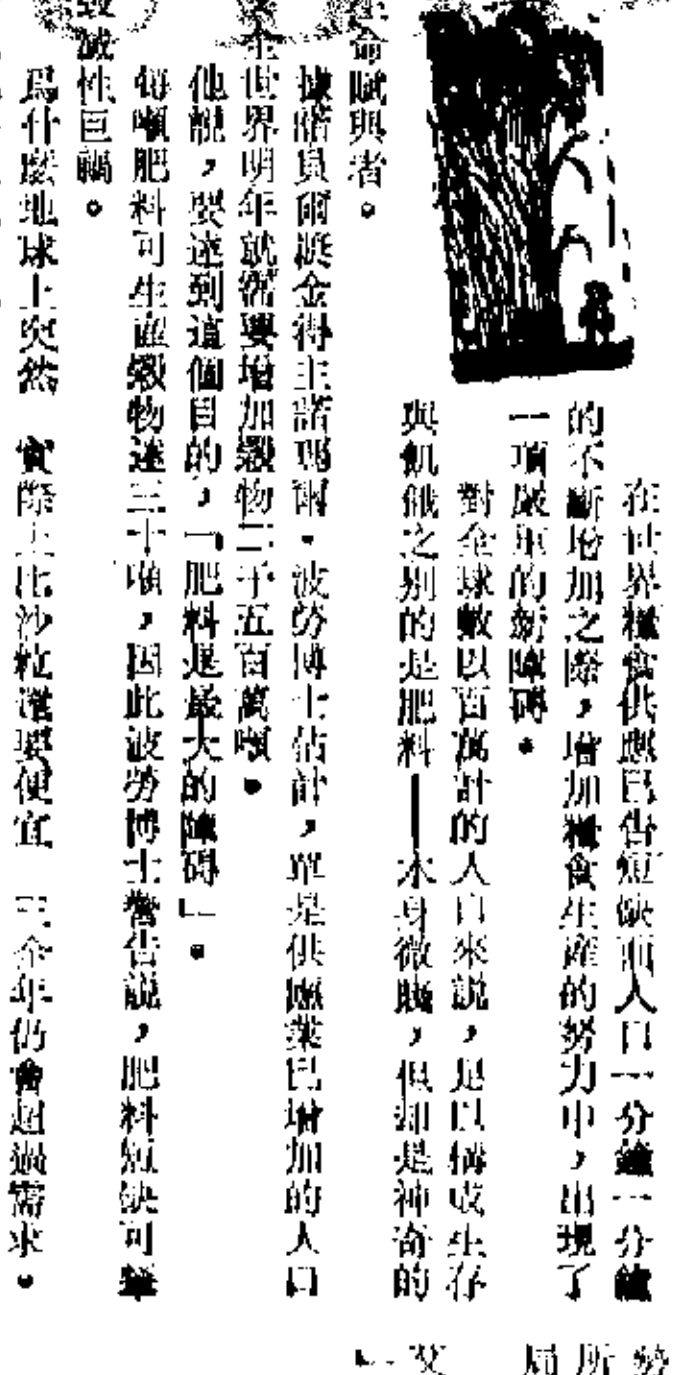 在世界糧食供應已告短缺而人口一分鐘一分鐘
的不斷增加之際，增加糧食生產的努力中，出現了
一項嚴重的新障碍。
對全球數以百萬計的人口來說，足以構成生存
與飢餓之別的是肥料——本身微賤，但却是神奇的
生命賦與者。
據諾貝爾獎金得主諾瑪爾·波勞博士估計，單是供應業已增加的人口
全世界明年就需要增加穀物二千五百萬噸。
他說，要達到這個目的，「肥料是最大的障碍」。
每噸肥料可生產穀物達三十噸，因此波勞博士警告說，肥料短缺可
致滅性巨禍。
爲什麼地球上突然 實際上比沙粒還要便宜 年仍會超過需求。
勞
所
局
艾